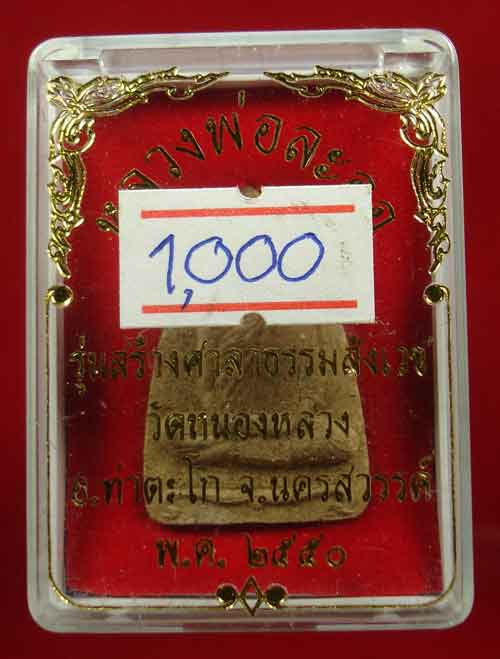 หลวงพ่อละออ
1,000
รุ่นสร้างศาลาธรรมสังเวช
วัดหนองหลวง
อ.ท่าตะโก จ.นครสวรรค์
พ.ศ. ๒๕๕๐